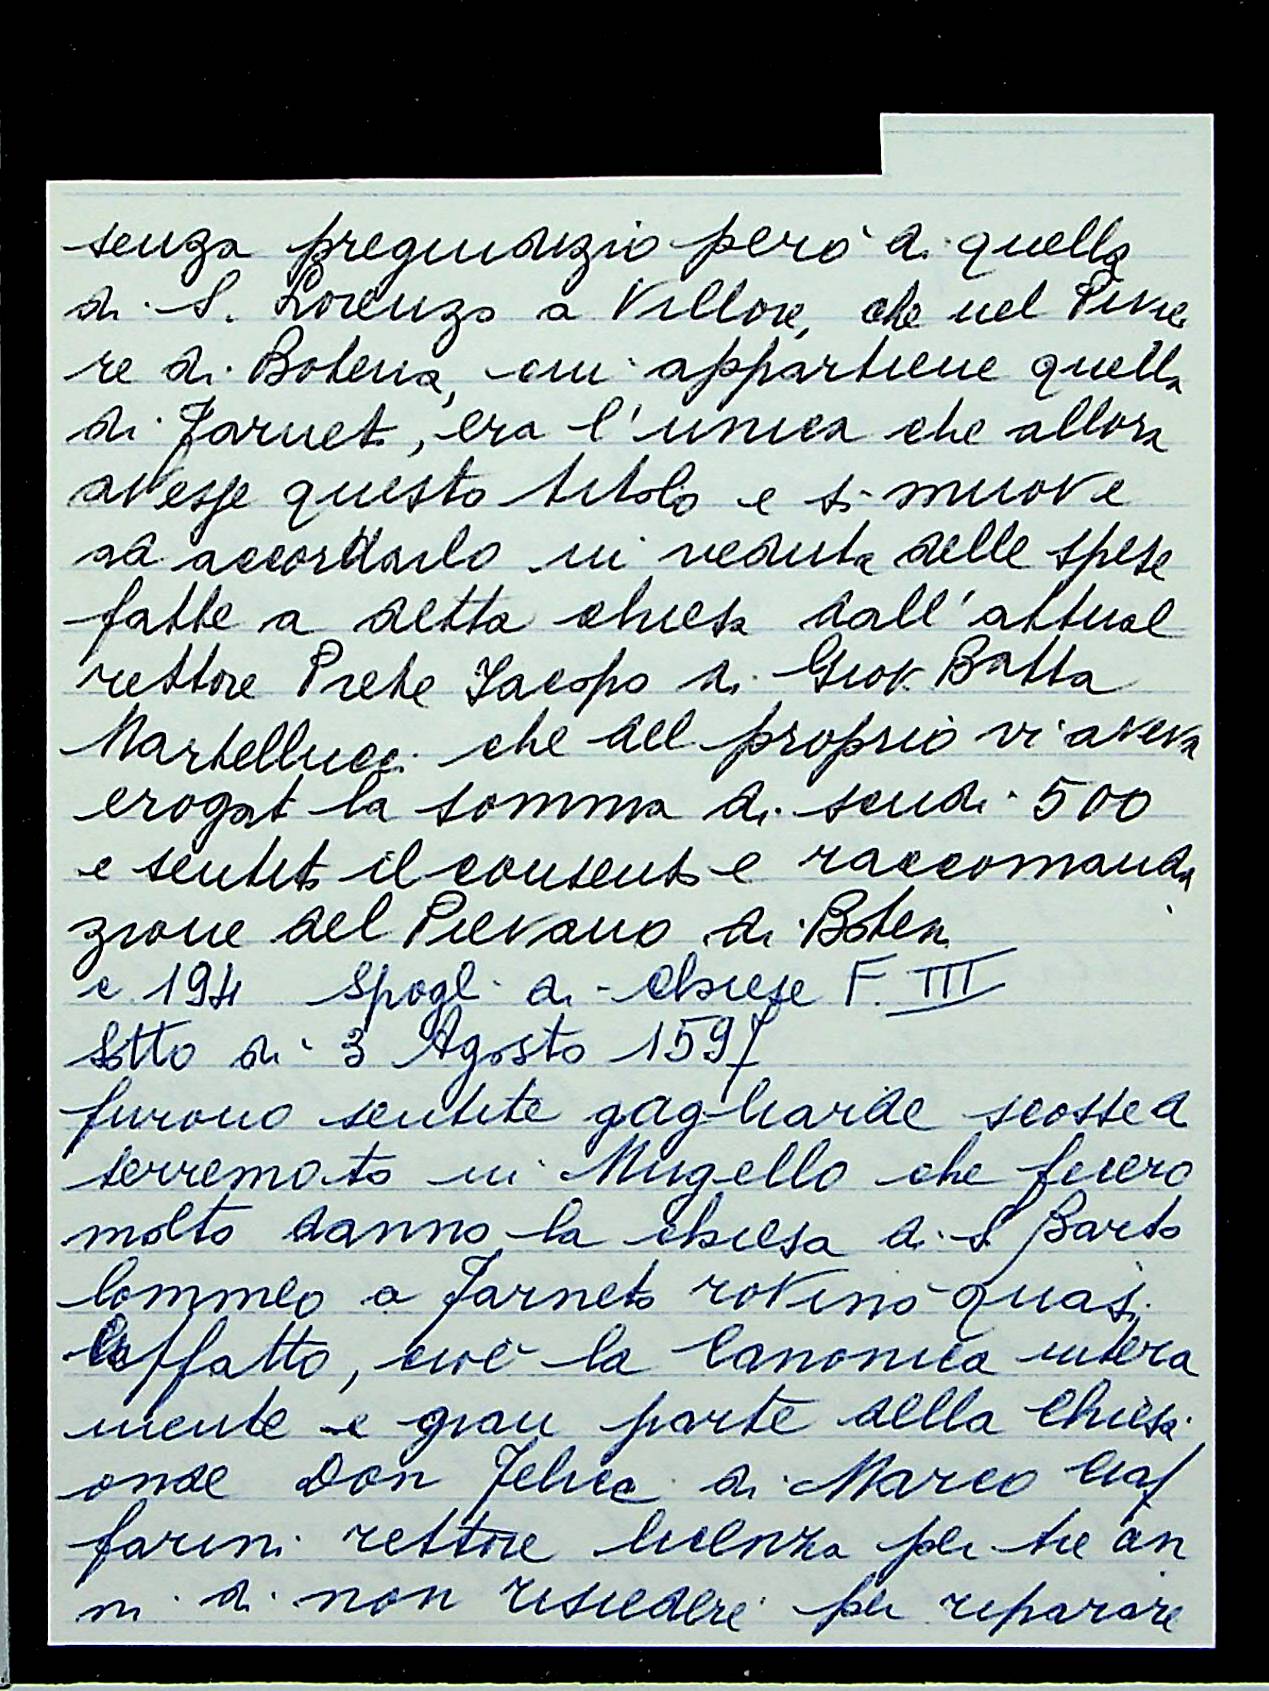 senza pregiudizio però di quella
di S. Lorenzo a Villore, che nel Pivie
re di Botena, cui appartiene quella
di Farneto, era l'unica che allora
avesse questo titolo e si muove
ad accordarlo in veduta delle spese
fatte a detta chiesa dall'attual
rettore Prete Jacopo di Giov. Batta
Martellucci che del proprio vi aveva
erogat la somma di scudi 500
e sentito il consento e raccomanda
zione del Pievano di Botena
c 194 Spogli di chiese F. III
Sotto di 3 Agosto 1597
furono sentite gagliarde scosse d
terremoto in Mugello che fecero
molto danno, la chiesa di S Barto
lommeo a Farneto rovinò quasi
affatto, cioè la Canonica intera
mente e gran parte della Chiesa
onde Don Felice di Marco
farini rettore licenza per tre an
ni di non risiedere per riparare